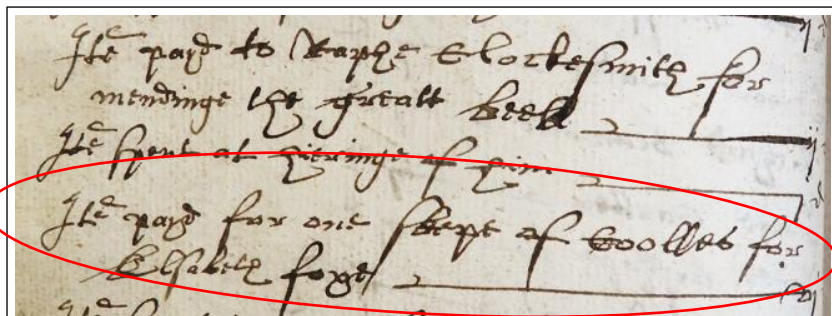 Itē payd to Raphe Clockesmith for
mendinge the greatt bell
Itē spent at hieringe of him
Itē payd for one skepe of Coolles for
Elsabeth foxe